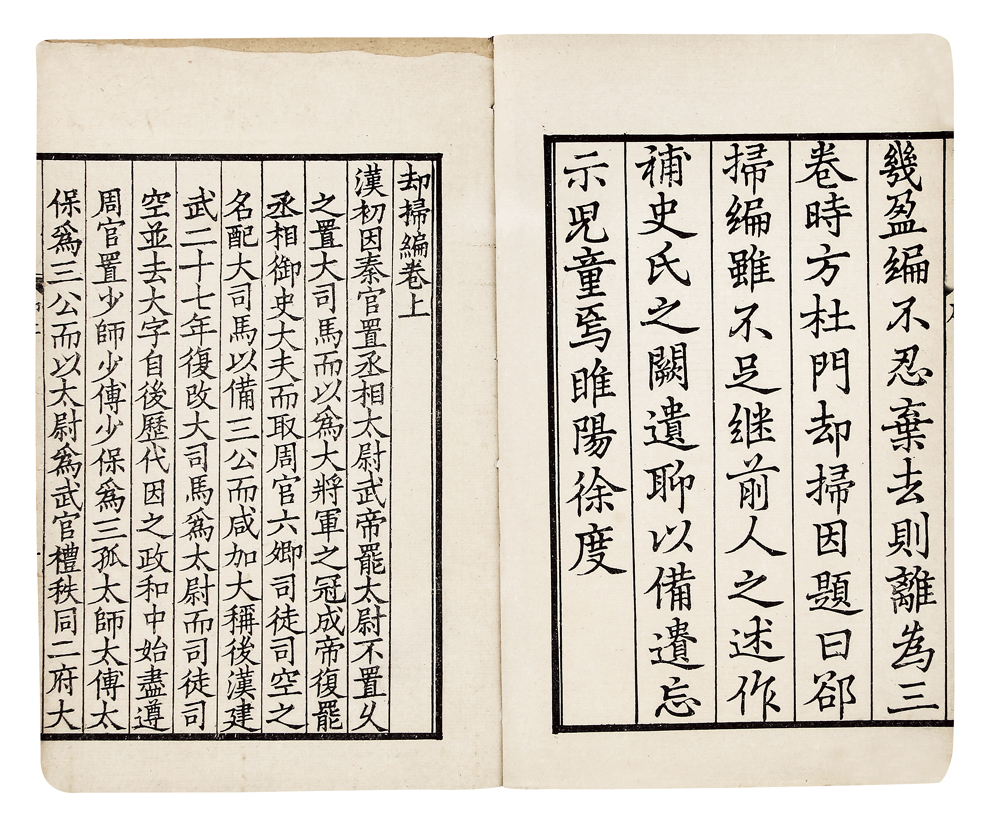 幾盈編不忍棄去則離為三
卷時方杜門却掃因題曰郤
掃編雖不足继前人之述作
補史氏之闕遺聊以備遺忘
示児童焉睢陽徐度
却掃編卷上
漢初因秦官置丞相太尉武帝罷太尉不置久
之置大司馬而以爲大將軍之冠成帝復罷
丞相御史大夫而取周官六卿司徒司空之
名配大司馬以備三公而咸加大稱後漢建
武二十七年復改大司馬爲太尉而司徒司
空並去大字自後歷代因之政和中始盡遵
周官置少師少傅少保爲三孤太師太傅太
保爲三公而以太尉爲武官禮秩同二府大